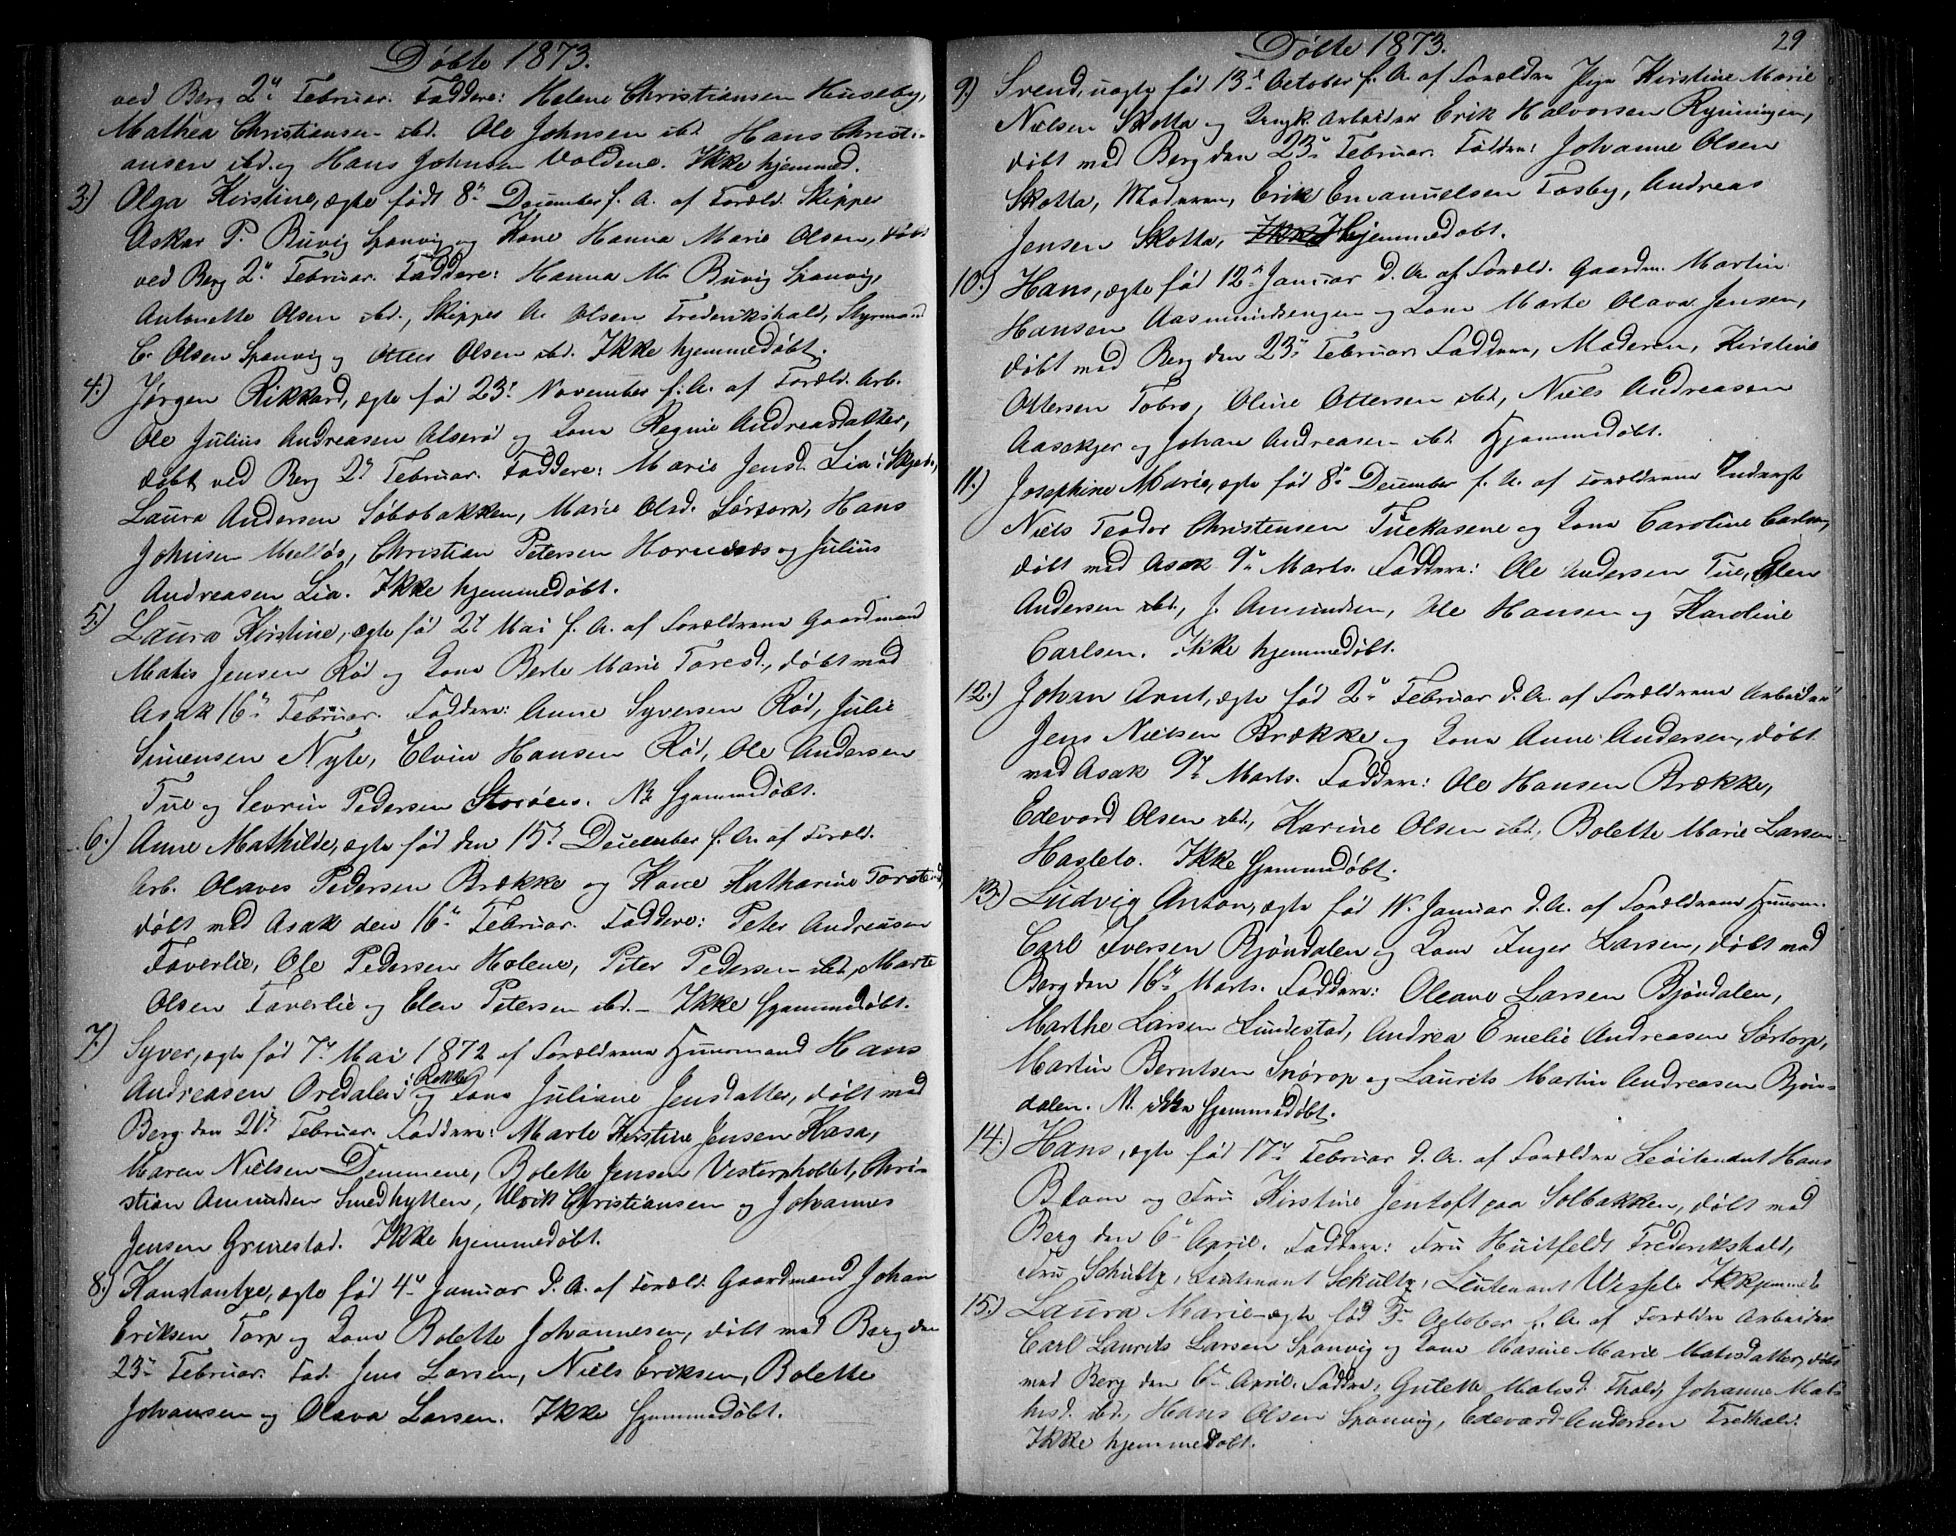 Döbte 1873.
ved Berg 2n Februar. Faddere: Helene Christiansen Huseby,
Mathea Christiansen ibd. Ole Johnsen ibd. Hans Christi-
ansen ibd. og Hans Johnsen Voldene. Ikke hjemmed.
3) Olga Kirstine, ægte født 8n December f. A. af Foræld. Skipper
Askar P. Buvig Sponvig og Kone Hanna Marie Olsen, döbt
ved Berg 2n Februar. Faddere: Hanna M. Buvig Sponvig,
Antonette Olsen ibd., Skipper A. Olsen Frederikshald, Styrmand
C. Olsen Sponvig og Otter Olsen ibd. Ikke hjemmedöbt.
4.) Jørgen Rikkard, ægte født 23d November f. A. af Foræld. Arb.
Ole Julius Andreasen Alseröd og Kone Regine Andreasdatter,
döbt ved Berg 2n Februar. Faddere: Marie Jensd. Lia i Skjeb.,
Laura Andersen Söbobakken, Marie Olsd. Sörtorp, Hans
Johnsen Melløs, Christian Petersen Hornæs og Julius
Andreasen Lia. Ikke hjemmedöbt.
5.) Laura Kirstine, ægte född 2n Mai f. A. af Forældrene Gaardmand
Mathis Jensen Rød og Kone Berte Marie Toresd., döbt ved
Asak 16n Februar. Faddere: Anne Syversen Rød, Julie
Simensen Nyte, Elvin Hansen Rød, Ole Andersen
Tue og Severin Pedersen Storöen. Hjemmedöbt.
6.) Anne Mathilde, ægte född den 15n December f. A. af Foræld.
Arb. Olaves Pedersen Brække og Kone Katharine Torstensd.
döbt ved Asak den 16n Februar. Faddere: Peter Andreasen
Faverlie, Ole Pedersen Holene, Peter Pedersen ibd., Marte
Olsen Faverlie og Elen Petersen ibd. – Ikke hjemmedöbt.
7.) Syver, ægte född 7n Mai 1872 af Forældrene Huusmand Hans
Andreasen Oredalen i Rokke og Kone Juliane Jensdatter, döbt ved
Berg den Februar. Faddere: Marte Kirstine Jensen Kasa,
Maren Nielsen Demmene, Bolette Jensen Vestorpholtet, Chri-
stian Amundsen Smedhytten, Ulrik Christiansen og Johannes
Jensen Grimestad. Ikke hjemmedöbt.
8.) Konstantse, ægte född 4n Januar d. A. af Foræld. Gaardmand Johan
Eriksen Torp og Kone Bolette Johannesen, döbt ved Berg den
23n Februar. Fad. Jens Larsen, Niels Eriksen, Bolette
Johansen og Olava Larsen. Ikke hjemmedöbt.
Döbte 1873. 29
9.) Svend, uægte född 13d October f. A. af Forældre Pige Kirstine Marie
Nielsen Skotta og Arbeider Erik Halvorsen Ryningen,
döbt ved Berg den 23n Februar. Faddere: Johanne Olsen
Skotta, Moderen, Erik Emanuelsen Tosby, Andreas
Jensen Skotta, Ikke Hjemmedöbt.
10.) Hans, ægte född 12n Januar d. A. af Foræld. Gaardm. Martin
Hansen Aasmundsengen og Kone Marte Olava Jensen,
döbt ved Berg den 23n Februar. Faddere, Moderen, Kirstine
Ottersen Tobro, Oline Ottersen ibd., Niels Andreasen
Aasakjer og Johan Andreasen ibd. Hjemmedöbt.
11.) Josephine Marie, ægte född 8n December f. A. af Forældrene Inderst
Niels Teodor Christensen Tuekasene og Kone Caroline Carlsen,
döbt ved Asak 9n Marts. Faddere: Ole Andersen Tue, Elen
Andersen ibd., J. Amundsen, Ole Hansen og Karoline
Carlsen. Ikke hjemmedöbt.
12.) Johan Arnt, ægte född 2n Februar d. A. af Forældrene Arbeider
Jens Nielsen Brække og Kone Anne Andersen, döbt
ved Asak 9n Marts. Faddere: Ole Hansen Brække,
Edevard Olsen ibd., Karine Olsen ibd., Bolette Marie Larsen
Hasleto. Ikke hjemmedöbt.
13.) Ludvig Anton, ægte född Januar d. A. af Forældrene Huusm.
Carl Iversen Bjöndalen og Kone Inger Larsen, döbt ved
Berg den 16n Marts. Faddere: Oleane Larsen Bjöndalen,
Marthe Larsen Lundestad, Andrea Emelie Andreasen Sörtorp,
Martin Berntsen Snörop og Laurits Martin Andreasen Bjön-
dalen. ikke hjemmedöbt.
14.) Hans, ægte född 17n Februar d. A. af Forældre Löitenant Hans
Blom og Fru Kirstine Jentoft paa Solbakken, döbt ved
Berg den 6n April. Faddere: Fru Huitfeldt Frederikshald,
Fru Schultz, Lieutenant Schultz, Lieutenant Wessel. Ikke
15.) Laura Marie ægte född October f. A. af Forældre Arbeider
Carl Laurits Larsen Sponvig og Kone Masine Marie Matisdatter, döbt
ved Berg den 6n April. Faddere: Gutette Matisd. Fhald, Johanne Mat-
hisd. ibd., Hans Olsen Sponvig, Edevard Andersen Fredhald.
Ikke hjemmedöbt.